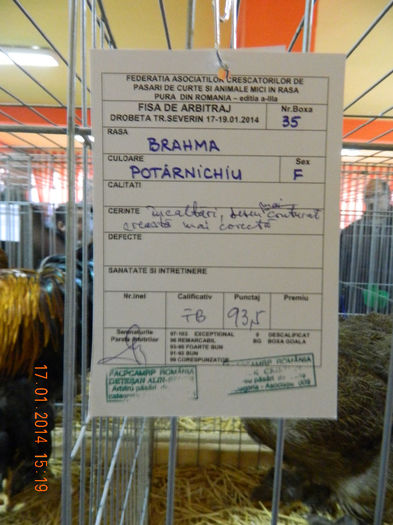 FEDERATIA ASOCIATIILOR CRESCATORILOR DE
PASARI DE CURTE SI ANIMALE MICI IN RASA
PURA DIN ROMANIA – editia a-IIIa
FISA DE ARBITRAJ
DROBETA TR.SEVERIN 17-19.01.2014
Nr.Boxa
35
RASA
BRAHMA
CULOARE
POTÂRNICHIU
Sex
F
CALITATI
CERINTE încaltari, desen mai conturat
creastă mai corectă
DEFECTE
SANATATE SI INTRETINERE
Nr.inel
Calificativ
FB
Punctaj
93,5
Premiu
Semnaturile
Parafa Arbitrilor
97-100 EXCEPTIONAL
96 REMARCABIL
93-95 FOARTE BUN
91-92 BUN
90 CORESPUNZATOR
0 DESCALIFICAT
BG BOXA GOALA
FACPCAMRP ROMÂNIA
DETESAN ALIN
Arbitru păsări de
ROMÂNIA
păsări de
Asociatia
17.01.2014 15:19